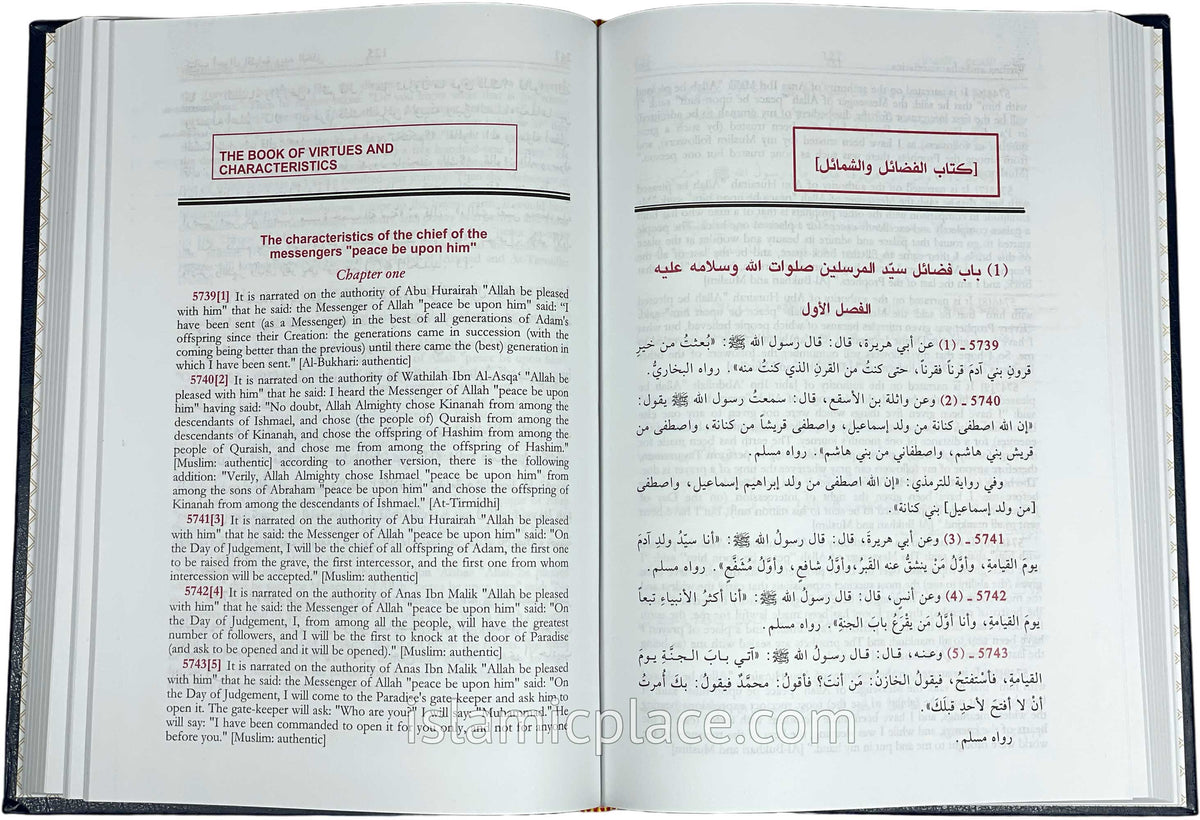 THE BOOK OF VIRTUES AND
CHARACTERISTICS
The characteristics of the chief of the
messengers "peace be upon him"
Chapter one
5739[1] It is narrated on the authority of Abu Hurairah "Allah be pleased
with him" that he said: the Messenger of Allah "peace be upon him" said: "I
have been sent (as a Messenger) in the best of all generations of Adam's
offspring since their Creation: the generations came in succession (with the
coming being better than the previous) until there came the (best) generation in
which I have been sent." [Al-Bukhari: authentic]
5740[2] It is narrated on the authority of Wathilah Ibn Al-Asqa' "Allah be
pleased with him" that he said: I heard the Messenger of Allah "peace be upon
him" having said: "No doubt, Allah Almighty chose Kinanah from among the
descendants of Ishmael, and chose (the people of) Quraish from among the
descendants of Kinanah, and chose the offspring of Hashim from among the
people of Quraish, and chose me from among the offspring of Hashim."
[Muslim: authentic] according to another version, there is the following
addition: "Verily, Allah Almighty chose Ishmael "peace be upon him" from
among the sons of Abraham "peace be upon him" and chose the offspring of
Kinanah from among the descendants of Ishmael." [At-Tirmidhi]
5741[3] It is narrated on the authority of Abu Hurairah "Allah be pleased
with him" that he said: the Messenger of Allah "peace be upon him" said: "On
the Day of Judgement, I will be the chief of all offspring of Adam, the first one
to be raised from the grave, the first intercessor, and the first one from whom
intercession will be accepted." [Muslim: authentic]
5742[4] It is narrated on the authority of Anas Ibn Malik "Allah be pleased
with him" that he said: the Messenger of Allah "peace be upon him" said: "On
the Day of Judgement, I, from among all the people, will have the greatest
number of followers, and I will be the first to knock at the door of Paradise
(and ask to be opened and it will be opened)." [Muslim: authentic]
5743[5] It is narrated on the authority of Anas Ibn Malik "Allah be pleased
with him" that he said: the Messenger of Allah "peace be upon him" said: "On
the Day of Judgement, I will come to the Paradise's gate-keeper and ask him to
open it. The gate-keeper will ask: "Who are you?" I will say: "Muhammad." He
will say: "I have been commanded to open it for you only, and not for anyone
before you." [Muslim: authentic]
[كتاب الفضائل والشمائل]
(1) باب فضائل سيّد المرسلين صلوات الله وسلامه عليه
الفصل الأول
5739 ـ (1) عن أبي هريرة، قال: قال رسول الله ﷺ: «بُعثتُ من خيرِ
قرونِ بني آدمَ قرناً فقرناً، حتى كنتُ من القرنِ الذي كنتُ منه». رواه البخاريُّ.
5740 ـ (2) وعن واثلة بن الأسقع، قال: سمعتُ رسولَ الله ﷺ يقول:
«إن الله اصطفى كنانة من ولد إسماعيل، واصطفى قريشاً من كنانة، واصطفى من
قريش بني هاشم، واصطفاني من بني هاشم». رواه مسلم.
وفي رواية للترمذي: «إن الله اصطفى من ولد إبراهيم إسماعيل، واصطفى
[من ولد إسماعيل] بني كنانة».
5741 ـ (3) وعن أبي هريرةَ، قال: قال رسولُ الله ﷺ: «أنا سيّدُ ولدِ آدمَ
يومَ القيامةِ، وأوَّلُ مَنْ ينشقُّ عنه القَبرُ،وأوَّلُ شافعٍ، وأوَّلُ مُشَفَّعٍ». رواه مسلم.
5742 ـ (4) وعن أنسٍ، قال: قال رسولُ الله ﷺ: «أنا أكثرُ الأنبياءِ تبعاً
يومَ القيامةِ، وأنا أوَّلُ من يقْرَعُ بابَ الجنةِ». رواه مسلم.
5743 ـ (5) وعنـه، قـال: قـال رسـولُ الله ﷺ: «آتـي بـابَ الـجـنَّـةِ يـومَ
القيامةِ، فأسْتفتحُ، فيقولُ الخازنُ: مَن أنتَ؟ فأقولُ: محمَّدٌ فيقولُ: بكَ أُمرتُ
أنْ لا أفتحَ لأحدٍ قبلَكَ».
رواه مسلم.
islamicplace.com